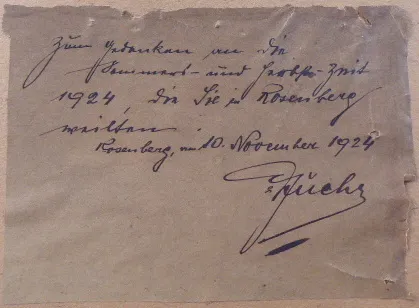 Zum Gedenken an die
Sommers- und Herbst-Zeit
1924, die Sie in Rosenberg
weilten.
Rosenberg, am 10. November 1924